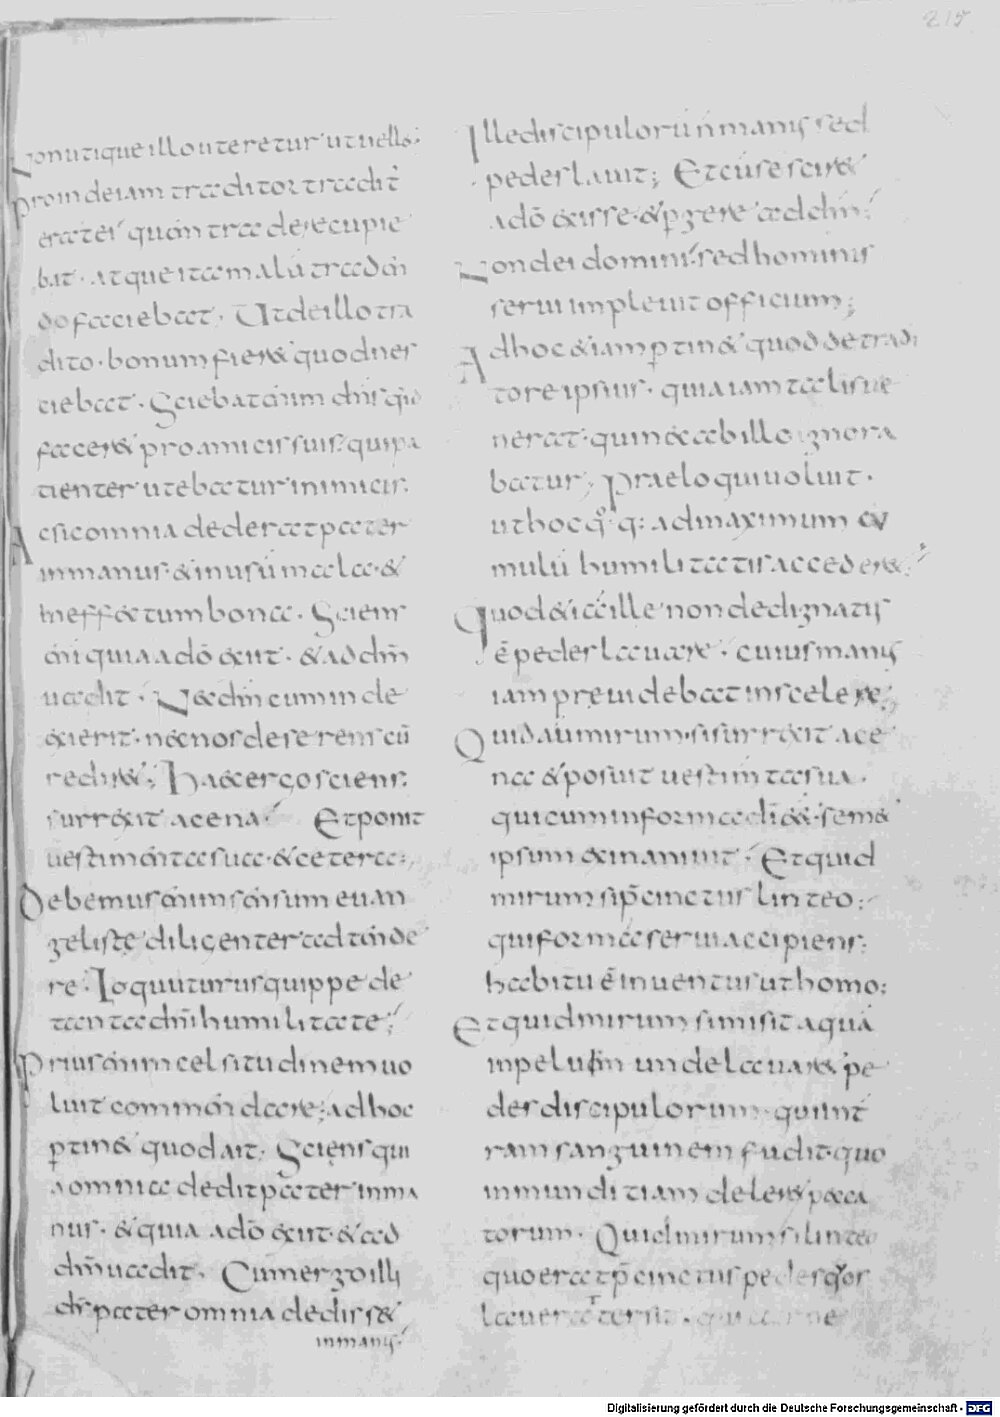 215
Non utique illo uteretur ut uellet;
Proinde iam traditor tradit
erat ei quem tradere cupie
bat. atque ita malū tradendo
faciebat. Ut de illo tra
dito. bonum fier& quod nes
ciebat. Sciebat enim dn̄s quid
facer& pro amicis suis. qui pa
tienter utebatur inimicis.
Ac si comnia dederat pater
in manus. & in usū mala. &
in effectum bona. Sciens
enī quia a dō exiit. & ad dn̄m
uadit. Nec dn̄m cum inde
exierit. nec nos deserens cū
redir&; Haec ergo sciens.
surrexit a cena. Et ponit
uestimenta sua. & cetera;
Debemus enim sensum euan
gelistę diligenter adtende
re. Loquuturus quippe de
tanta dn̄i humilitate;
Prius enim celsitudinem uo
luit commendare; ad hoc
ꝑtin& quod ait. Sciens qui
a omnia dedit ei pater in ma
nus. & quia a dō exiit. & ad
dn̄m uadit. Cum ergo illi
ds pater omnia dediss&
in manus.
Ille discipulorū n̄ manus sed
pedes lauit; Et cū se scir&
a dō exisse. & ꝑgere ad dn̄m;
Non dei domini. sed hominis
serui impleuit officium;
Ad hoc etiam ꝑtin& quod de tradi
tore ipsius. quia iam talis ue
nerat. qui nec ab illo ignora
batur; Praeloqui uoluit.
ut hoc quoq: ad maximum cu
mulū humilitatis acceder&;
Quod etiā ille non dedignatus
ē pedes lauare. cuius manus
iam preuidebat in scelere;
Quid autē mirum. si surrexit a ce
na & posuit uestimenta sua.
qui cum in forma dī ess&. sem&
ipsum exinaniuit. Et quid
mirum si p̄cinctus linteo;
qui formā serui accipiens.
habitu ē inuentus ut homo;
Et quid mirum si misit aquā
in peluim unde lauar& pe
des discipulorum. qui in t̄
ram sanguinem fudit. quo
inmunditiam deler& pecca
torum. Quid mirum si linteo
quo erat p̄cinctus pedes quos
lauerat tersit. qui carne
Digitalisierung gefördert durch die Deutsche Forschungsgemeinschaft - DFG